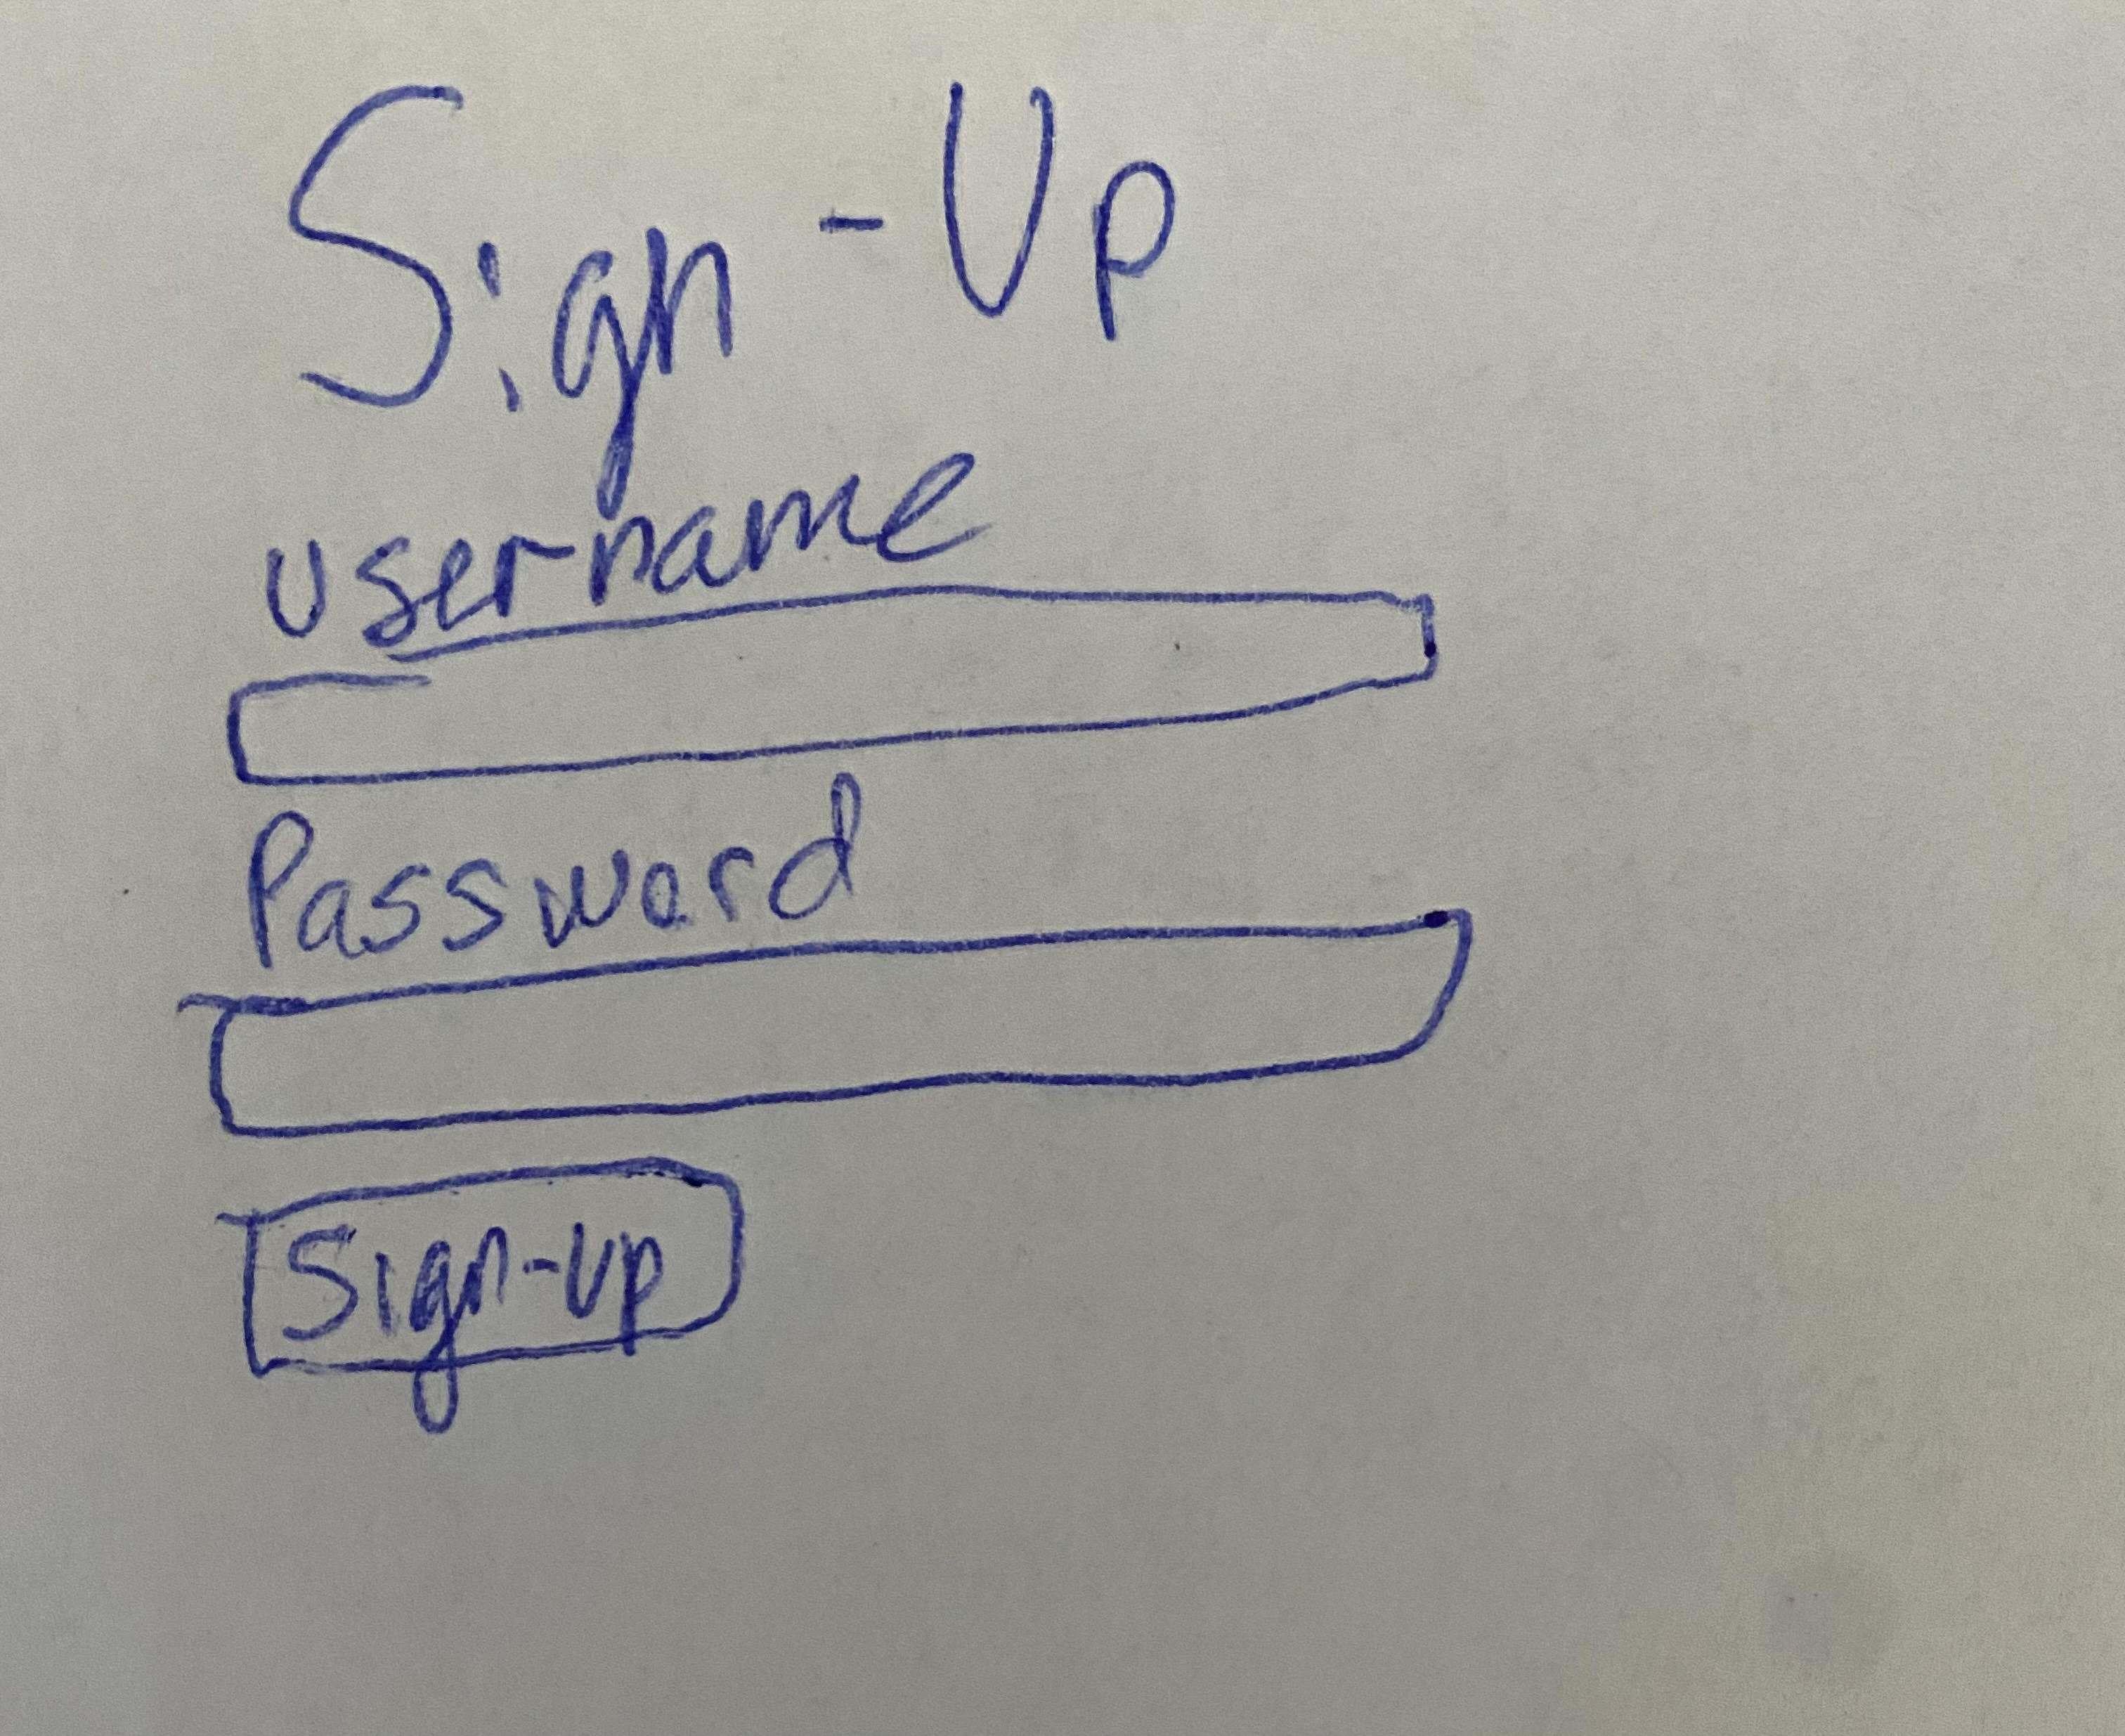 Sign-Up
username
Password
Sign-up